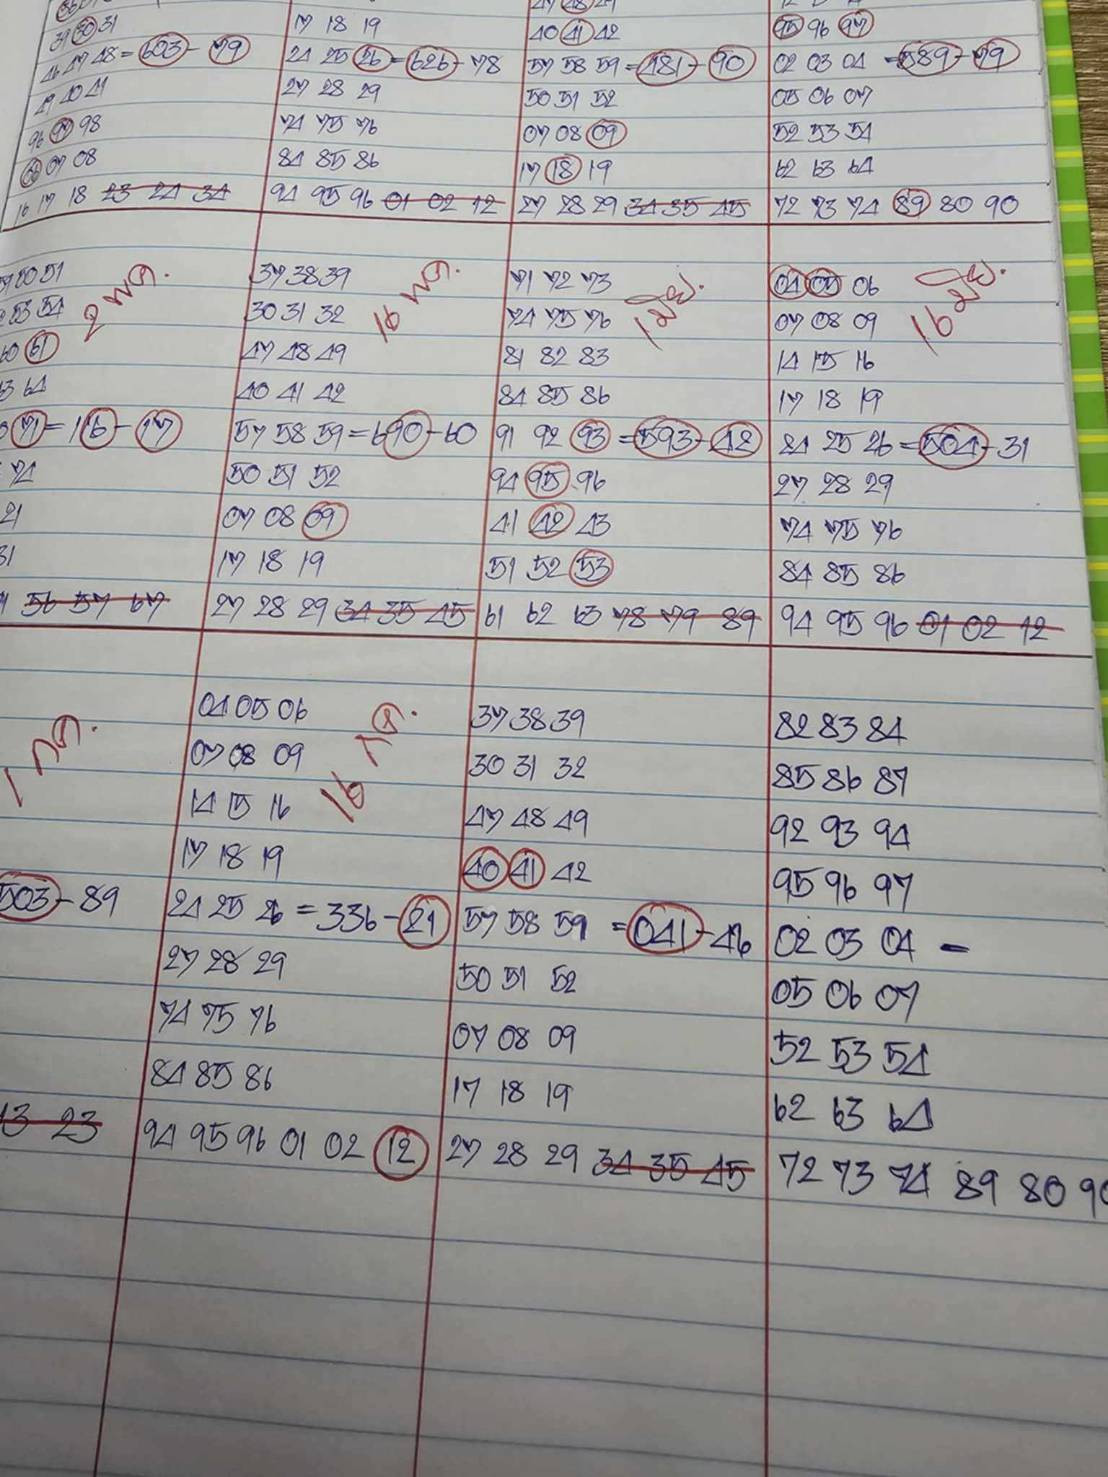 39 30 31
17 18 19
40 41 42
95 96 97
46 47 48 = 603 - 79
24 25 26 = 626 - 78
57 58 59 = 481 - 90
02 03 04 = 589 - 79
49 40 41
27 28 29
50 51 52
05 06 07
96 97 98
74 75 76
07 08 09
52 53 54
07 08
84 85 86
17 18 19
62 63 64
16 17 18 23 24 34
94 95 96 01 02 12
27 28 29 34 35 45
72 73 74 89 80 90
50 51
2 พค.
37 38 39
16 พค.
71 72 73
1 มิย.
04 05 06
16 มิย.
53 54
30 31 32
74 75 76
07 08 09
61
47 48 49
81 82 83
14 15 16
64
40 41 42
84 85 86
17 18 19
71 = 116 - 17
57 58 59 = 690 - 60
91 92 93 = 593 - 42
24 25 26 = 504 - 31
74
50 51 52
94 95 96
27 28 29
21
07 08 09
41 42 43
74 75 76
31
17 18 19
51 52 53
84 85 86
56 57 67
27 28 29 34 35 45
61 62 63 78 79 89
94 95 96 01 02 12
1 กค.
04 05 06
16 กค.
37 38 39
82 83 84
07 08 09
30 31 32
85 86 87
14 15 16
47 48 49
92 93 94
17 18 19
40 41 42
95 96 97
503 - 89
24 25 26 = 336 - 21
57 58 59 = 041 - 46
02 03 04 -
27 28 29
50 51 52
05 06 07
74 75 76
07 08 09
52 53 54
84 85 86
17 18 19
62 63 64
13 23
94 95 96 01 02 12
27 28 29 34 35 45
72 73 74 89 80 90